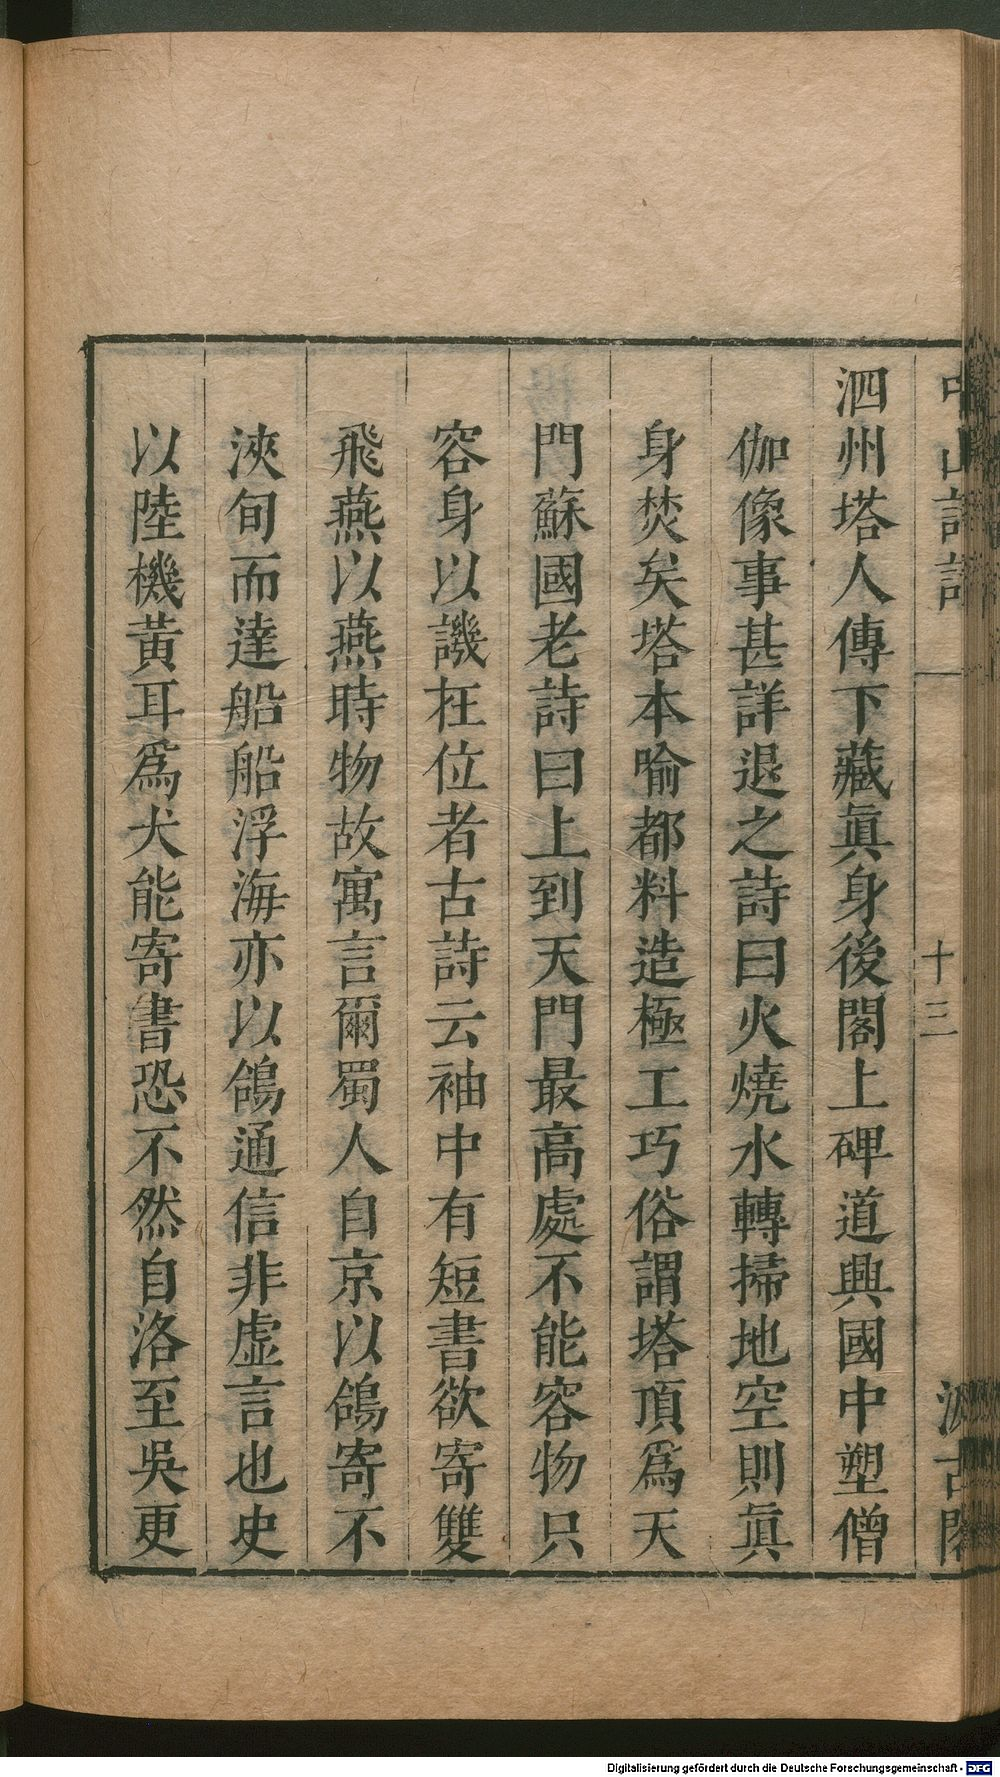 中山詩話
十三
汲古閣
泗州塔人傳下藏眞身後閣上碑道興國中塑僧
伽像事甚詳退之詩曰火燒水轉掃地空則眞
身焚矣塔本喻都料造極工巧俗謂塔頂爲天
門蘇國老詩曰上到天門最高處不能容物只
容身以譏在位者古詩云袖中有短書欲寄雙
飛燕以燕時物故寓言爾蜀人自京以鴿寄不
浹旬而達船船浮海亦以鴿通信非虛言也史
以陸機黃耳爲犬能寄書恐不然自洛至吳更
Digitalisierung gefördert durch die Deutsche Forschungsgemeinschaft - DFG